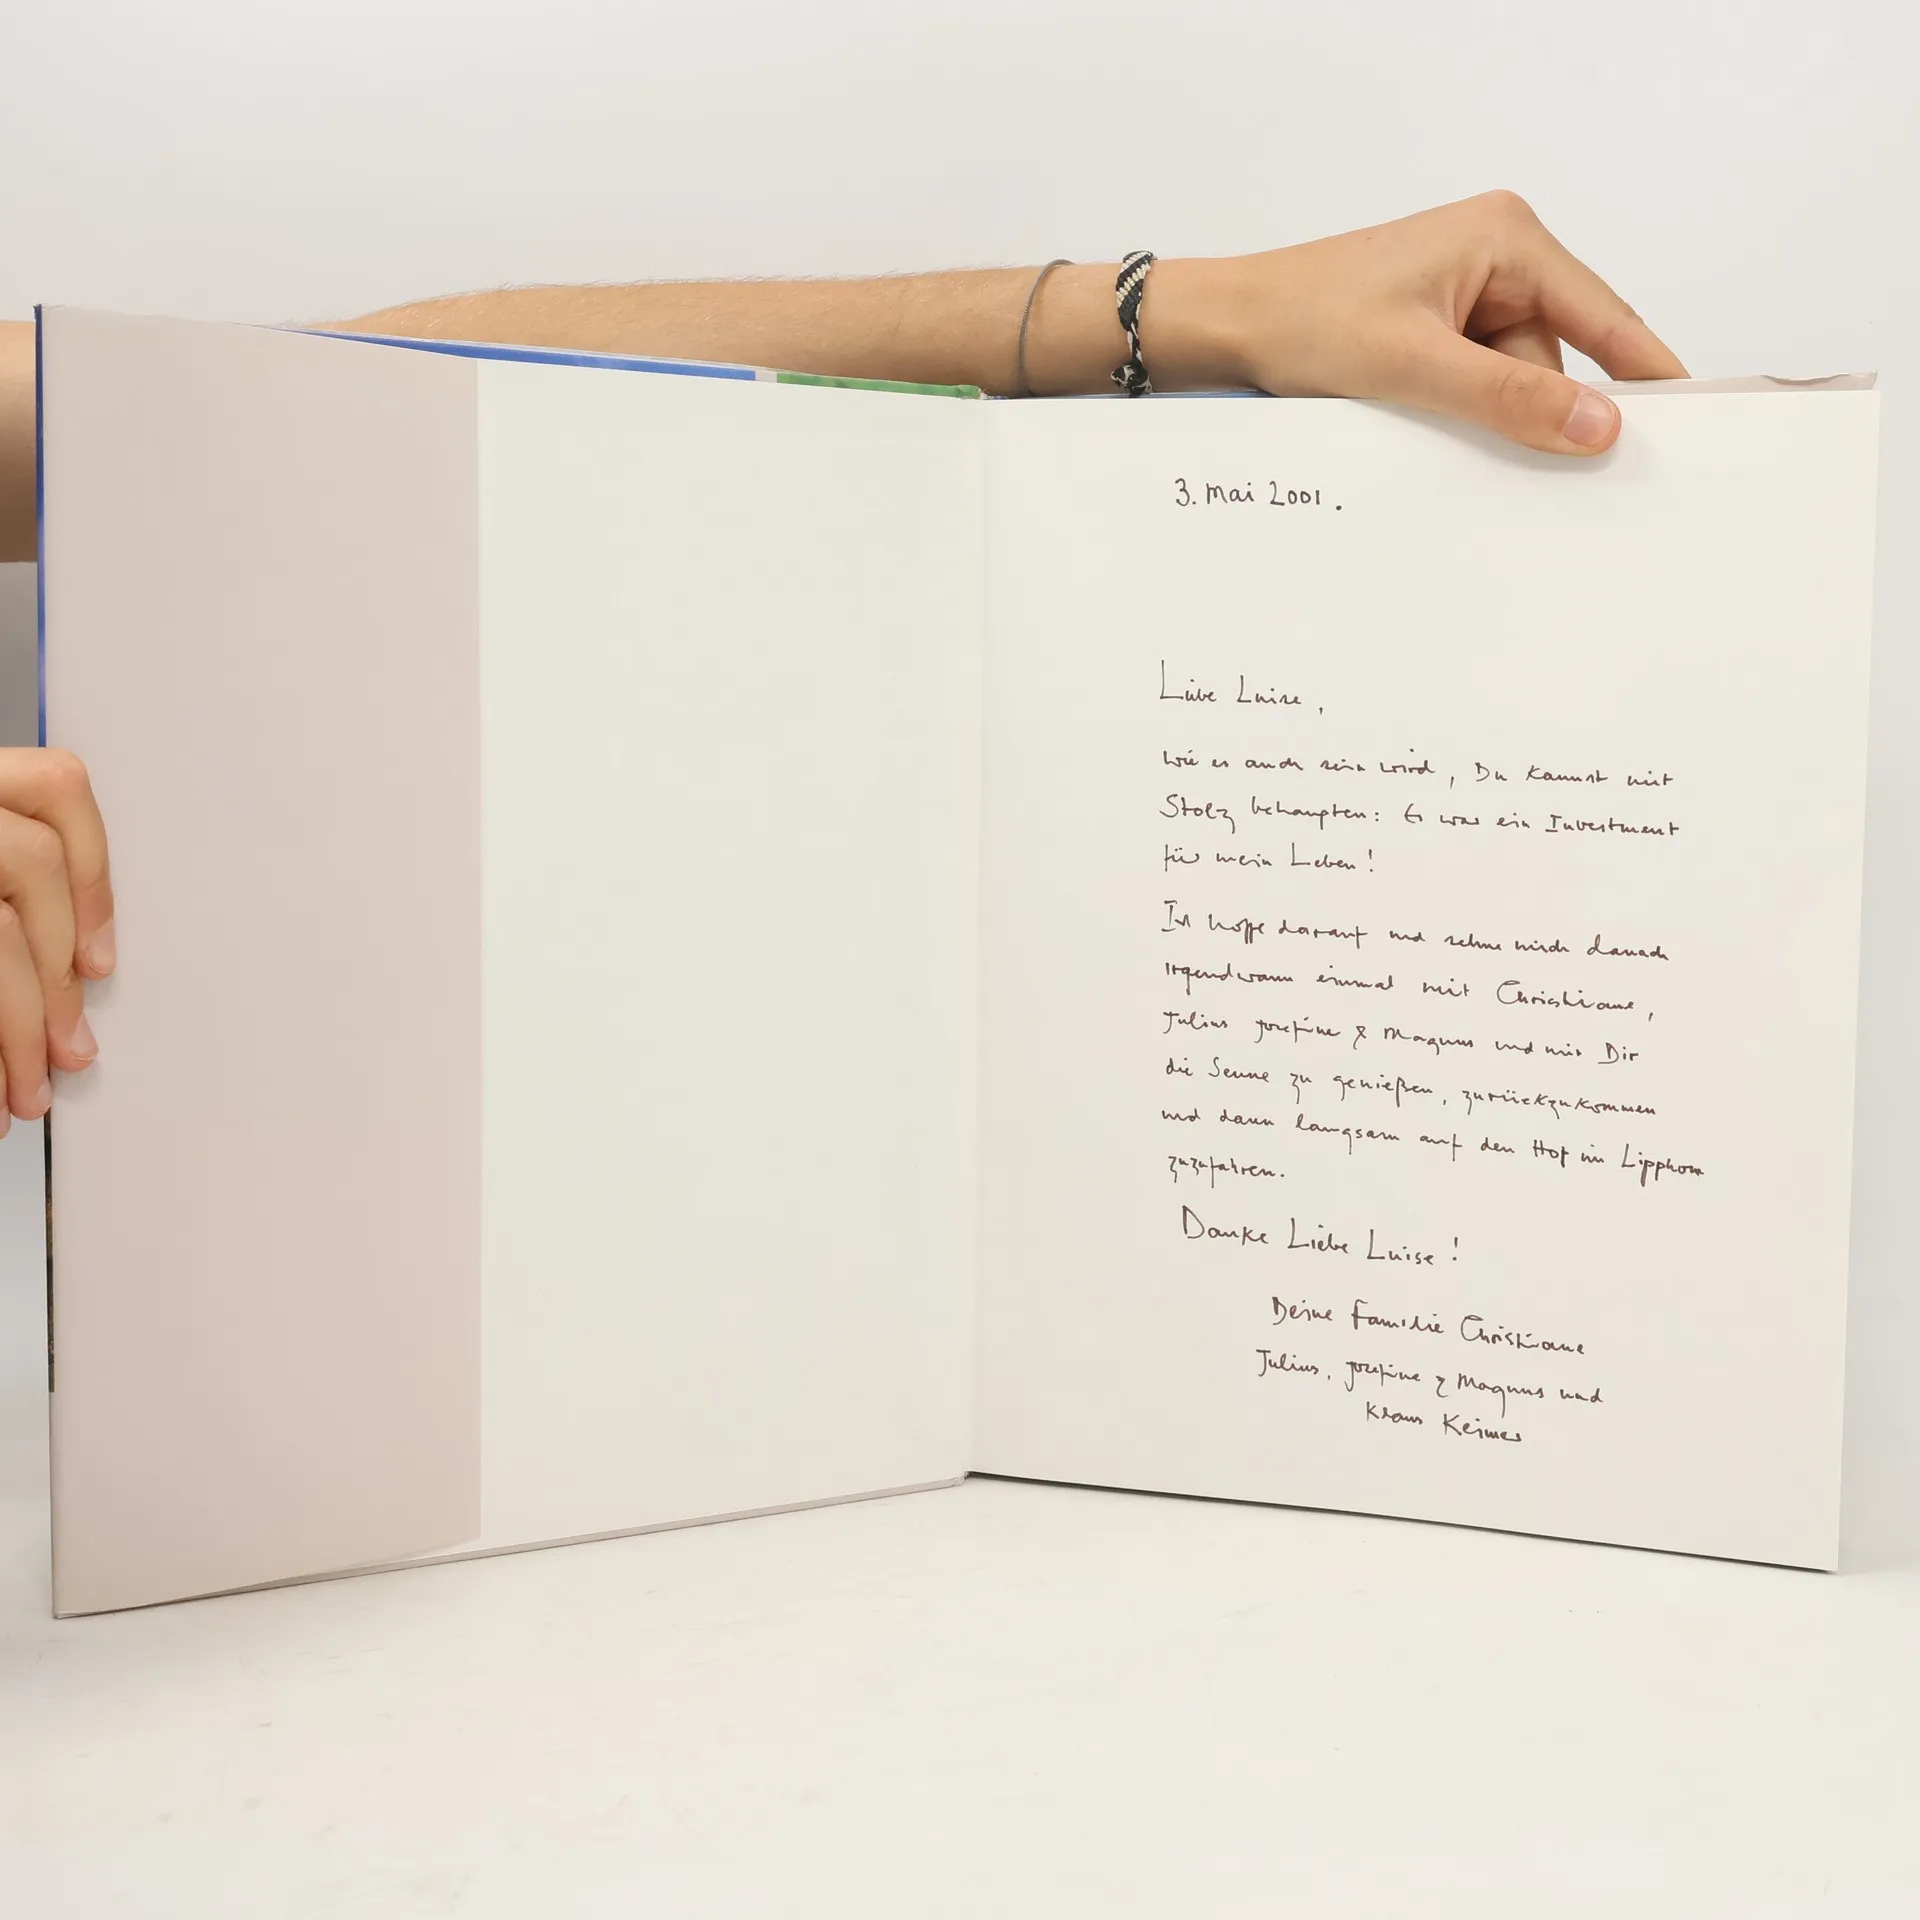 3. Mai 2001.
Liebe Luise,
wie es auch sein wird, Du kannst mit
Stolz behaupten: Es war ein Investment
für mein Leben!
Ich hoffe darauf und sehne mich danach
irgendwann einmal mit Christiane,
Julius Josefine & Magnus und mit Dir
die Senne zu genießen, zurückzukommen
und dann langsam auf den Hof in
zuzufahren.
Danke Liebe Luise!
Deine Familie Christiane
Julius, Josefine & Magnus und
Klaus